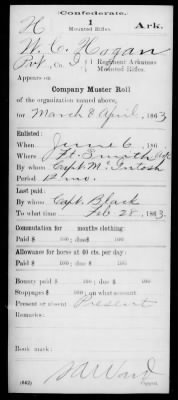 Confederate.
H 1 Ark.
Mounted Rifles.
W. C. Hogan
Pvt, Co. I, 1 Regiment Arkansas
Mounted Rifles.
Appears on
Company Muster Roll
of the organization named above,
for March & April, 1863
Enlisted:
When June 6, 186
Where Ft. Smith Ark
By whom Capt. McIntosh
Period 12 mo.
Last paid:
By whom Capt. Black
To what time Feb 28, 1863
Commutation for months clothing:
Paid $ 100; due $ 100
Allowance for horse at 40 cts. per day:
Paid $ 100; due $ 100
Bounty paid $ 100; due $ 100
Stoppages $ 100 on what account
Present or absent Present
Remarks:
Book mark:
(642) Copyist.